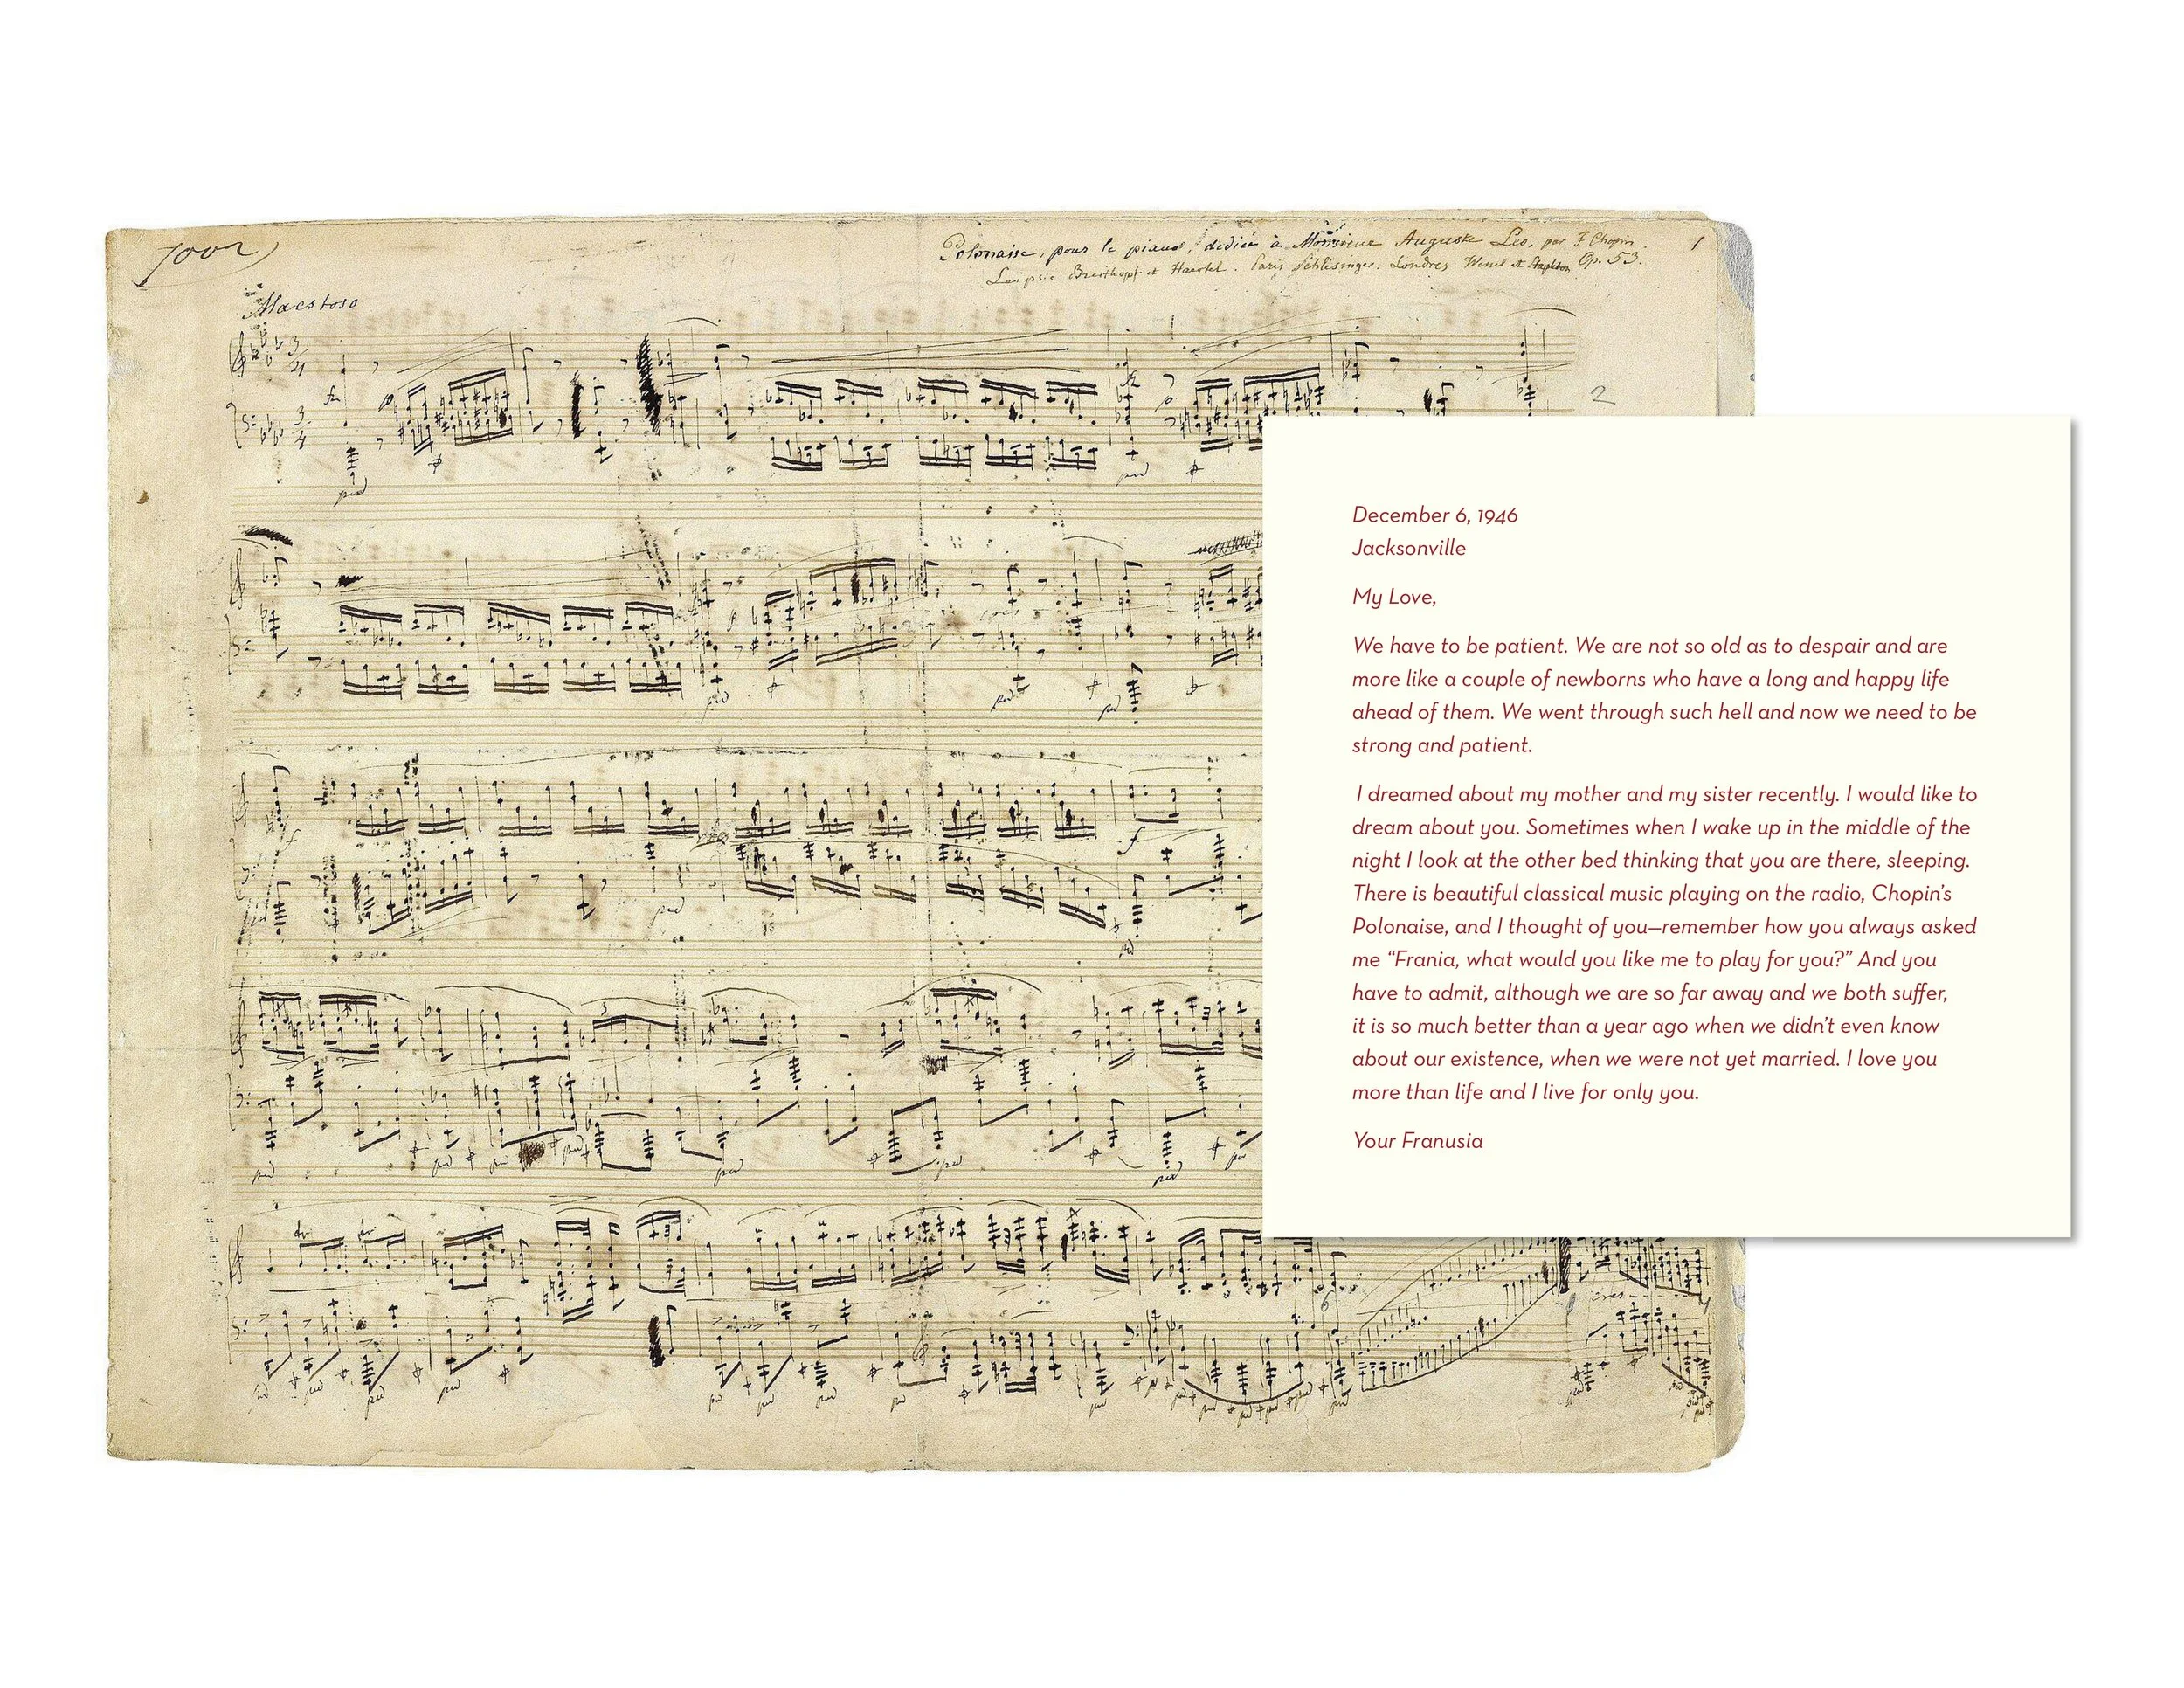 1002
Polonaise, pour le piano, dediée à Monsieur Auguste Leo, par F Chopin.
1
Leipsic Breitkopf et Haertel. Paris Schlesinger. Londres Wessel et Stapleton Op. 53.
Maestoso
2
December 6, 1946
Jacksonville
My Love,
We have to be patient. We are not so old as to despair and are
more like a couple of newborns who have a long and happy life
ahead of them. We went through such hell and now we need to be
strong and patient.
I dreamed about my mother and my sister recently. I would like to
dream about you. Sometimes when I wake up in the middle of the
night I look at the other bed thinking that you are there, sleeping.
There is beautiful classical music playing on the radio, Chopin’s
Polonaise, and I thought of you—remember how you always asked
me “Frania, what would you like me to play for you?” And you
have to admit, although we are so far away and we both suffer,
it is so much better than a year ago when we didn’t even know
about our existence, when we were not yet married. I love you
more than life and I live for only you.
Your Franusia